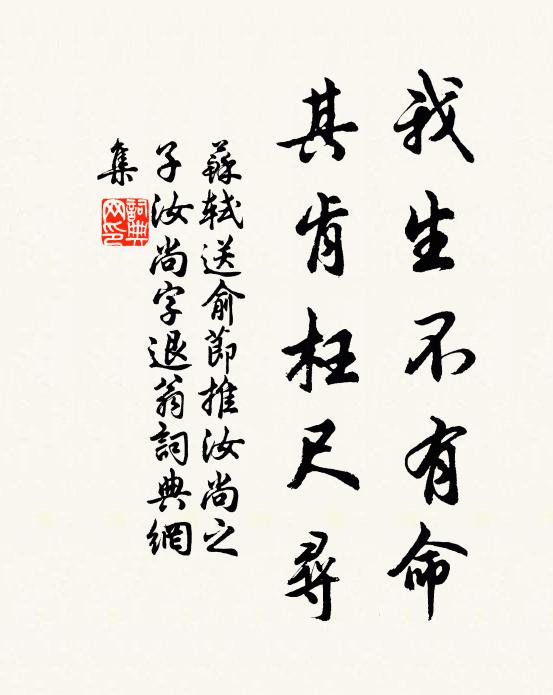 我生不有命
其肯枉尺尋
蘇軾送俞節推汝尚之
子汝尚字退翁詞典網
集
詞典網印